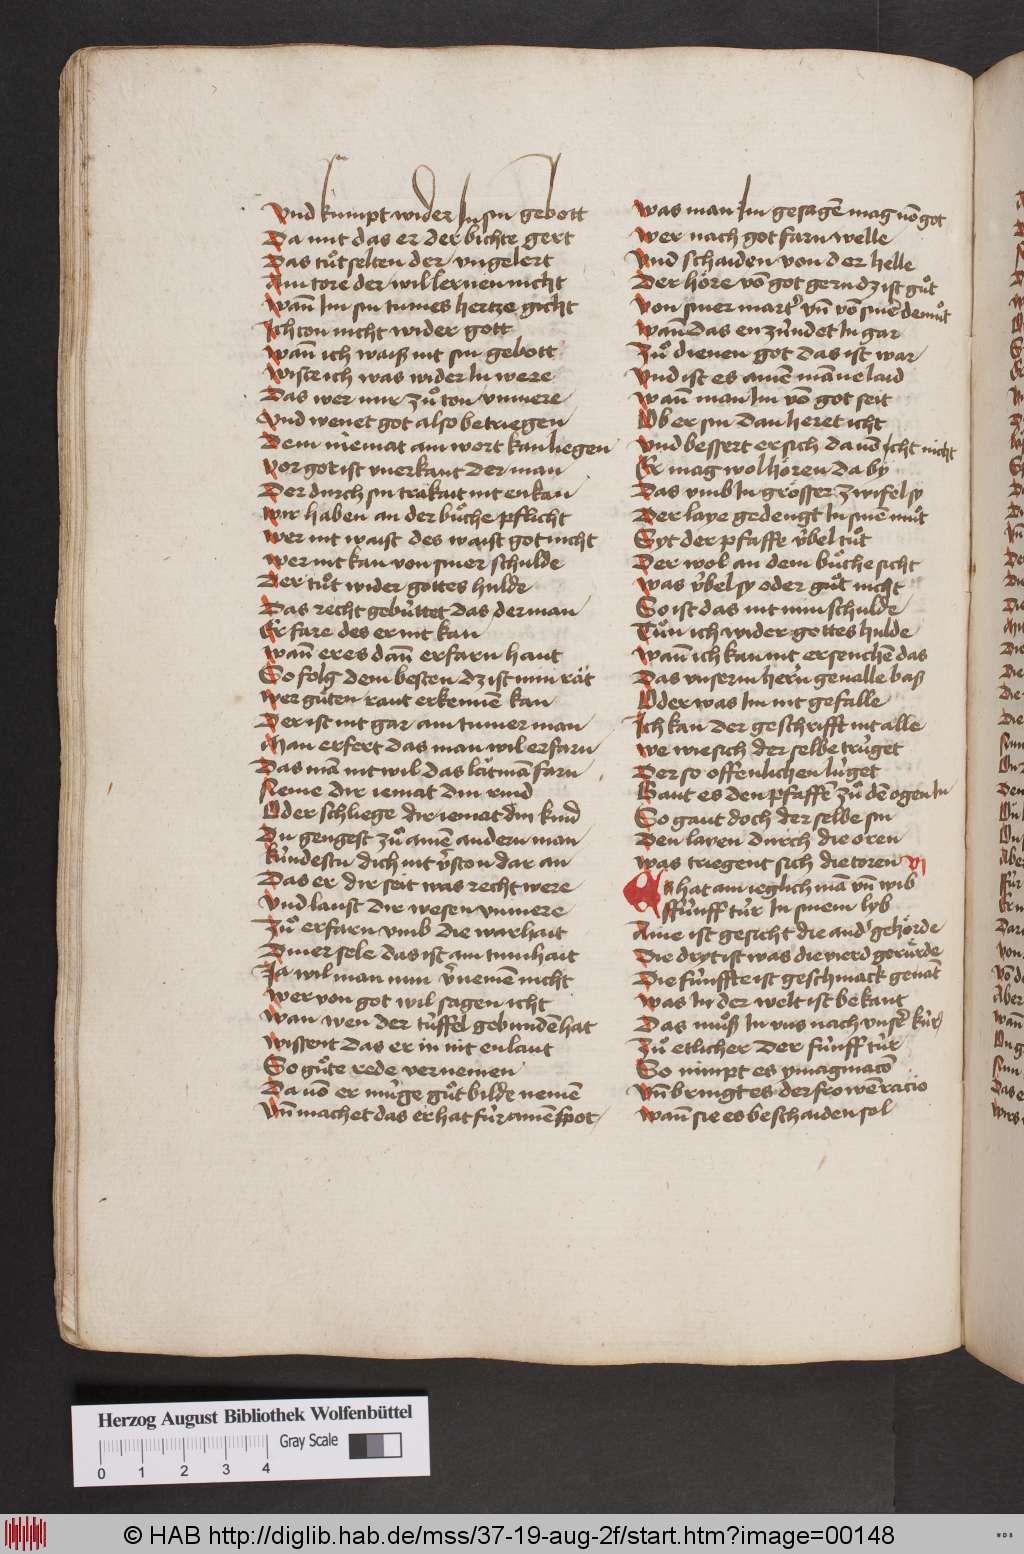 Vnd kumpt wider In sin gebott
Da mit das er der bichte gert
Das tuͦt selten der vngelert
Ain tore der wil lernen nicht
Wañ Im sin tumes hertze gicht
Ich ton nicht wider gott
Wañ ich waiß nit sin gebott
Wiste ich was wider In were
Das wer mir zuͦ ton vnmere
Vnd wenet got also betriegen
Dem niemat ain wort kan liegen
Vor got ist vnerkant der man
Der durch sin träkait nit enkan
Wir haben an der buͦche pflicht
Wer nit waist des waist got nicht
Wer nit kan von siner schulde
Der tuͦt wider gottes hulde
Das recht gebúttet das der man
Er fare des er nit kan
Wañ er es dañ erfarn hant
So folg dem besten dz ist min rät
Wer guͦten raut erkennē kan
Der ist nit gar ain tumer man
Man erfert das man wil erfarn
Das mā nit wil das lät mā farn
Neme dir iemat din rind
Oder schliege dir iemat din kind
Du gengest zuͦ ainē andern man
Kúndestu dich nit v̄ston dar an
Das er dir seit was recht were
Vnd laust dir wesen vnmere
Zuͦ erfarn vmb die warhait
Diner sele das ist ain tumhait
Ja wil man nun v̄nemē nicht
Wer von got wil sagen icht
Wan wen der túffel gebundē hat
Wissent das er in nit enlaut
So guͦte rede vernemen
Da uō er múge guͦt bilde nemē
Vn̄ machet das er hat fúr ainē spot
Was man Im gesagē mag uō got
Wer nach got farn welle
Vnd schaiden von der helle
Der höre vō got gern dz ist guͦt
Von siner mart' vn̄ vō sinē demuͦt
Wañ das enzúndet In gar
Zuͦ dienen got das ist war
Vnd ist es ainē māne laid
Wañ man Im vō got seit
Ober sin dan heret icht
Vnd bessert er sich da uō icht nicht
Er mag wol hören da by
Das vmb In grösser zwifel sy
Der laye gedengt In sinē muͦt
Syt der pfaffe v́bel tuͦt
Der wol an dem buͦche sicht
Was v́bel sy oder guͦt nicht
So ist das nit min schulde
Tuͦn ich wider gottes hulde
Wañ ich kan nit ersenchē das
Das vnserm hern geualle baß
Oder was Im nit gefalle
Ich kan der geschrifft nit alle
We wie sich der selbe trúget
Der so offenlichen lúget
Gaut es den pfaffē zuͦ dē ogen In
So gaut doch der selbe sin
Den layen durch die oren
Was triegent sich die toren VI
hat ain ieglich mā vn̄ wib
ffúnff túr In sinem lyb
Aine ist gesicht die and' gehörde
Die dryt ist was die vierd gerúrde
Die fúnffte ist geschmack genāt
Was In der welt ist bekant
Das muͦß In vns nach vnser kúr
Zuͦ etlicher der fúnff túr
So nimpt es ymaginacō
Vn̄ bringt es der frowē racio
Wañ sie es beschaiden sol
Herzog August Bibliothek Wolfenbüttel
Gray Scale
0 1 2 3 4
© HAB http://diglib.hab.de/mss/37-19-aug-2f/start.htm?image=00148